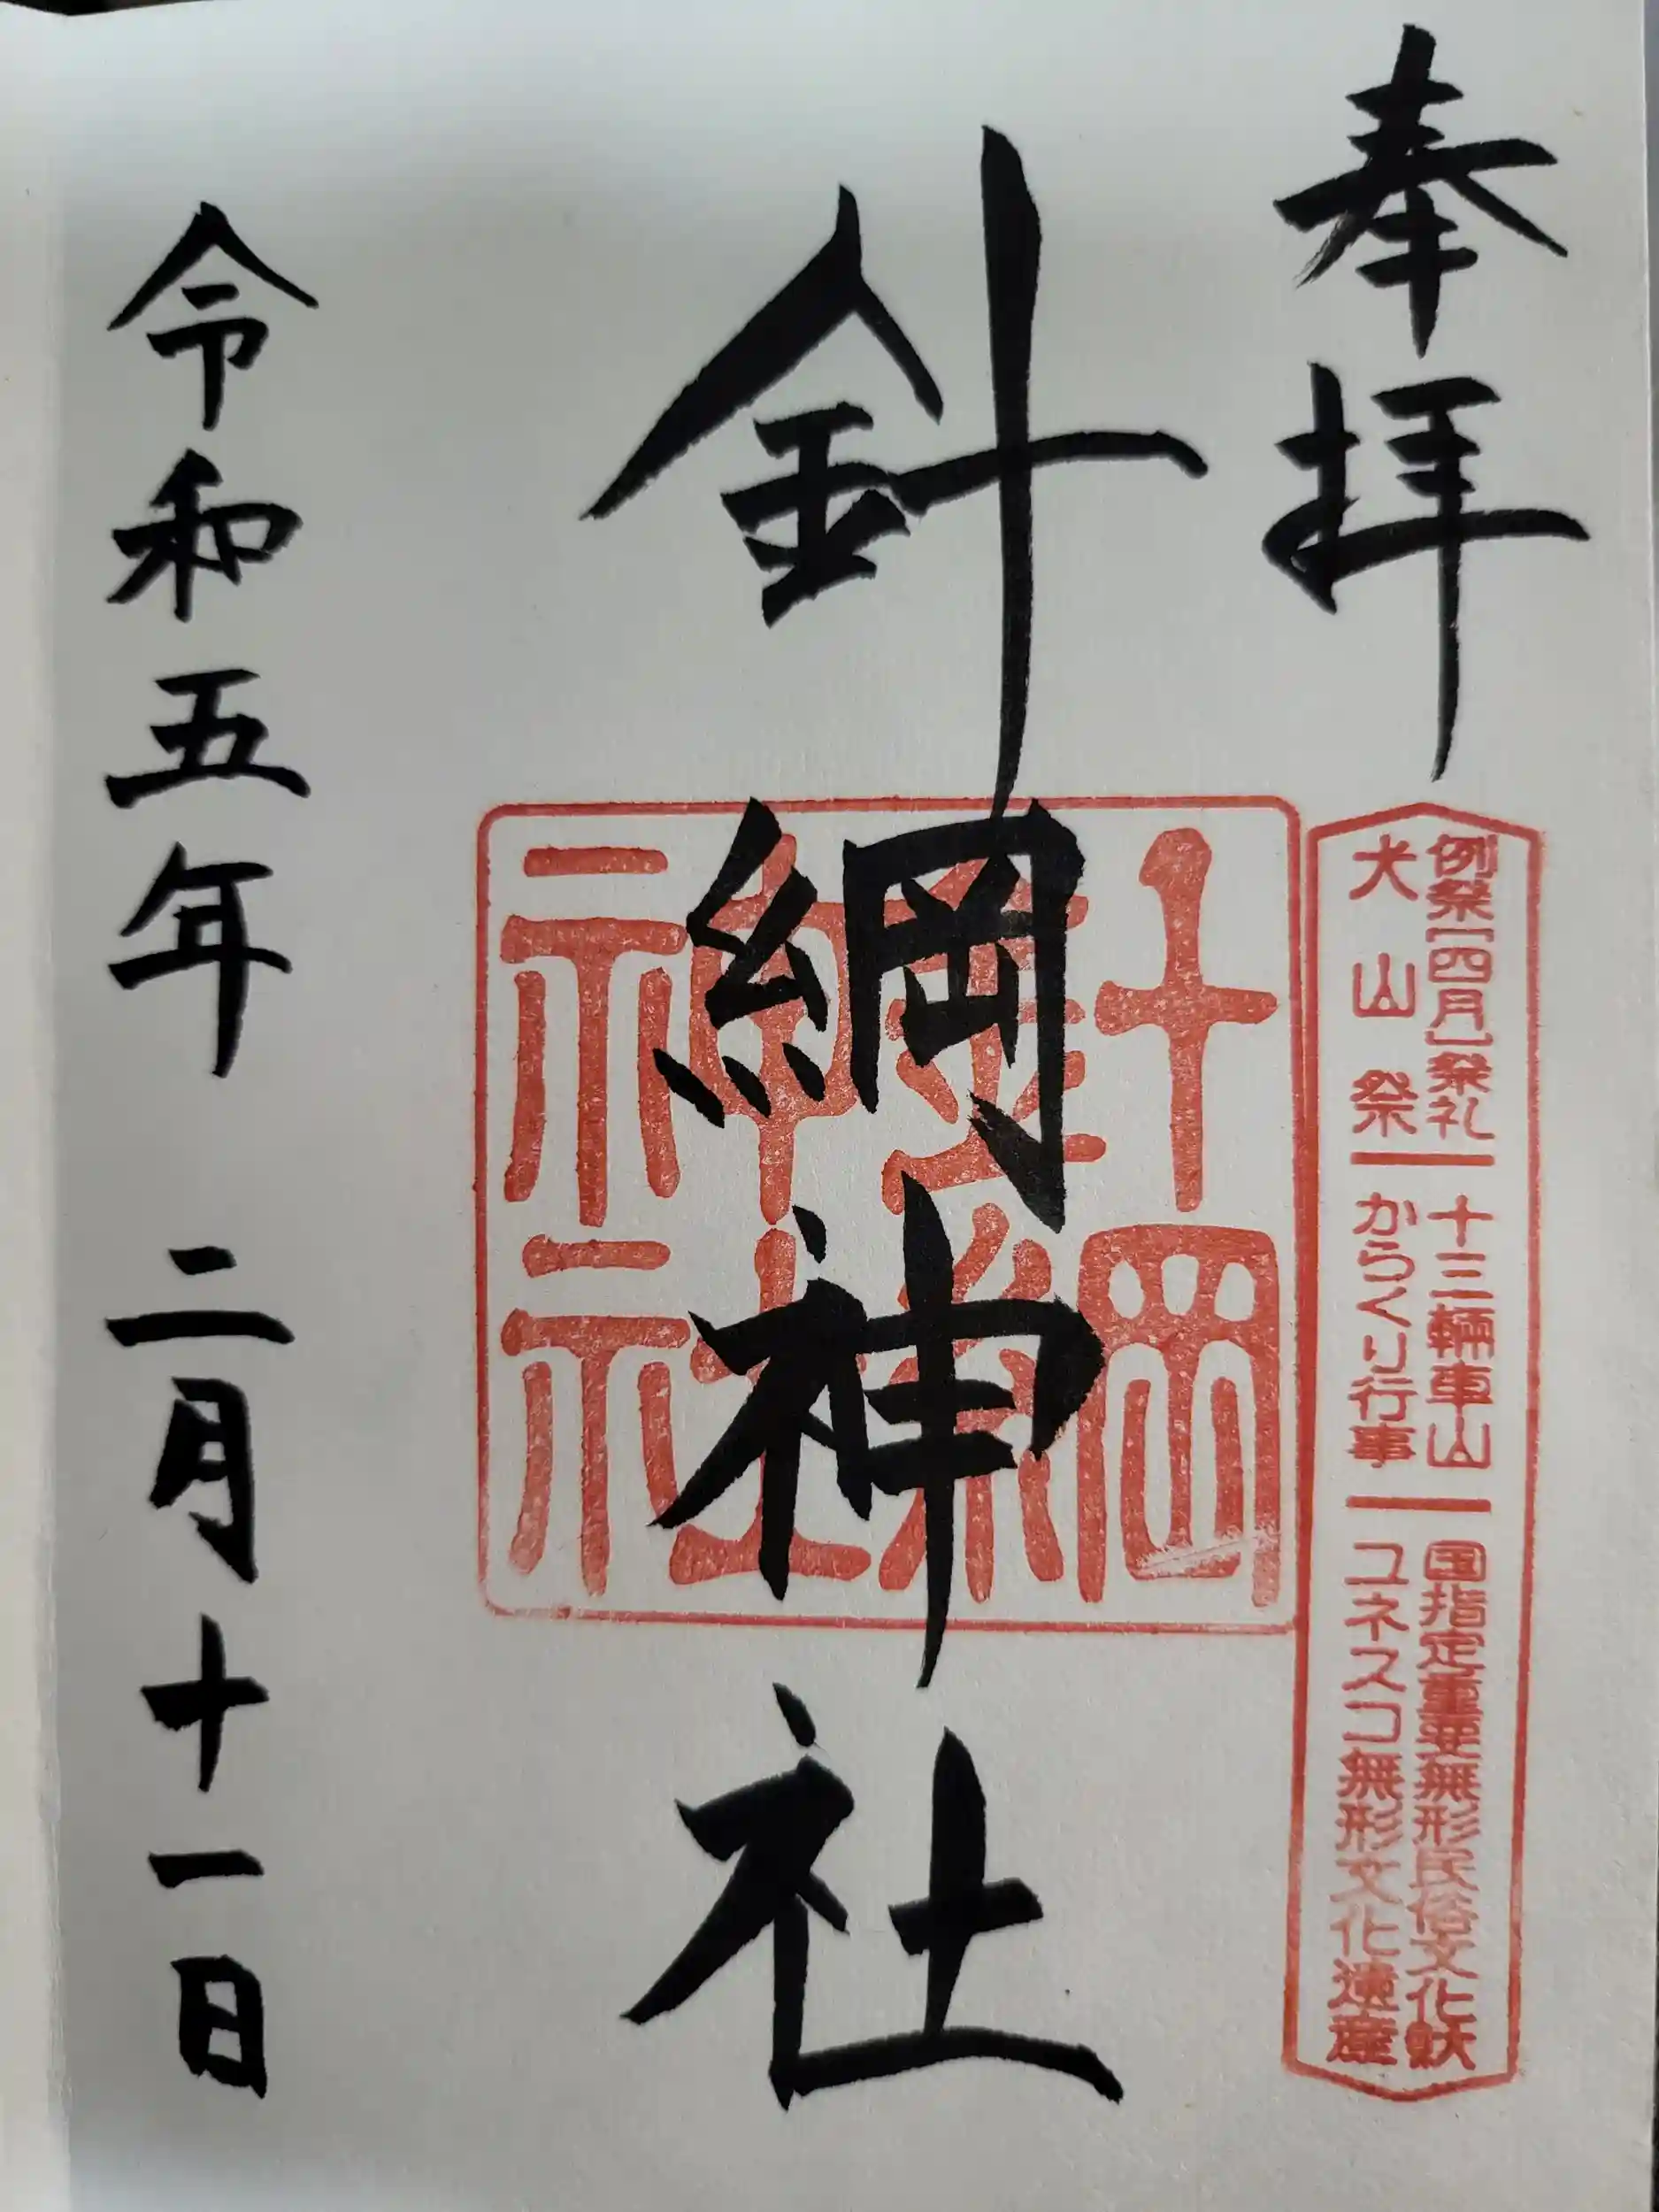 奉拝
例祭【四月】祭礼 十三輛車山 国指定重要無形民俗文化財
犬山祭 からくり行事 ユネスコ無形文化遺産
針綱神社
針綱神社
令和五年 二月十一日